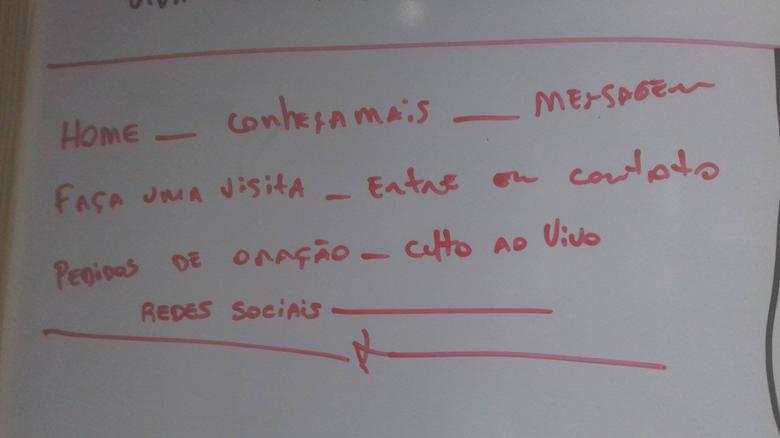 HOME — CONHEÇA MAIS — MENSAGEM
FAÇA UMA VISITA — ENTRE EM CONTATO
PEDIDOS DE ORAÇÃO — CULTO AO VIVO
REDES SOCIAIS —